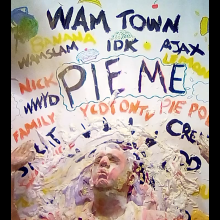 WAM TOWN
BANANA
IDK
AJAX
WAMSLAM
LEMON
NICK
PIE ME
WWYD
YCDTOTV
PIE PO
FAMILY
CRE